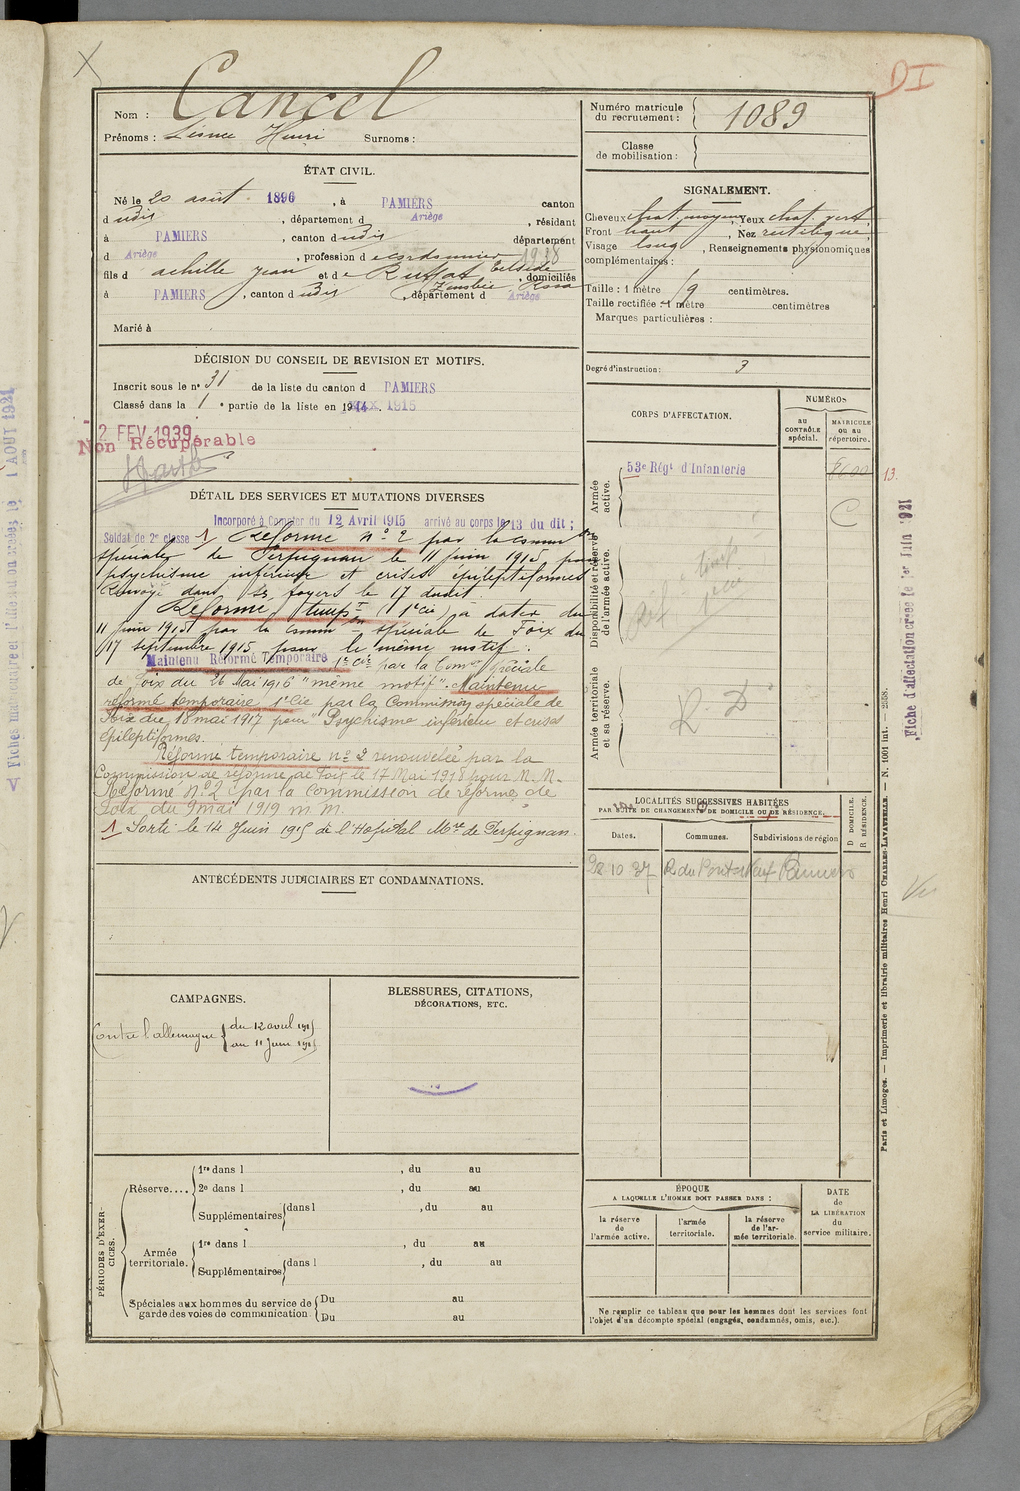 DI
Nom : Cancel
Prénoms : Henri Surnoms :
ÉTAT CIVIL.
Né le 20 août 1896, à PAMIERS canton
d udit, département d Ariège, résidant
à PAMIERS, canton dudit département
d Ariège, profession de cordonnier 1938
fils d achille Jean et de Ruffat domiciliés
à PAMIERS, canton dudit, département d Ariège
Marié à
DÉCISION DU CONSEIL DE REVISION ET MOTIFS.
Inscrit sous le nº 31 de la liste du canton d PAMIERS
Classé dans la 1 e partie de la liste en 1914. 1915
2 FEV 1939
Non Récupérable
DÉTAIL DES SERVICES ET MUTATIONS DIVERSES
Incorporé à Compter du 12 Avril 1915 arrivé au corps le 13 du dit ;
Soldat de 2e classe 1 Réformé nº 2 par la comm on
spéciale de Perpignan le 11 juin 1915 pour
psychisme inférieur et crises épileptiformes
Renvoyé dans ses foyers le 17 dudit.
Réformé temp re (1e cie) à dater du
11 juin 1915 par la comm on spéciale de Foix du
17 septembre 1915 pour le même motif.
Maintenu Réformé Temporaire 1e cie par la Com on spéciale
de Foix du 26 Mai 1916 "même motif". Maintenu
réformé temporaire, 1e Cie par la Commission spéciale de
Foix du 18 mai 1917 pour "Psychisme inférieur et crises
épileptiformes.
Réformé temporaire nº 2 renouvelée par la
Commission de réforme de Foix le 17 Mai 1918 pour M. M.
Réformé Nº 2 par la Commission de réforme de
Foix du 9 mai 1919 m. M.
1 Sorti le 14 Juin 1915 de l'Hopital M re de Perpignan.
ANTÉCÉDENTS JUDICIAIRES ET CONDAMNATIONS.
CAMPAGNES.
Contre l'allemagne { du 12 avril 1915
au 11 Juin 1915
BLESSURES, CITATIONS,
DÉCORATIONS, ETC.
PÉRIODES D'EXERCICES.
Réserve....
1re dans l , du au
2e dans l , du au
Supplémentaires dans l , du au
Armée territoriale.
1re dans l , du au
Supplémentaires dans l , du au
Spéciales aux hommes du service de
garde des voies de communication
Du au
Du au
Numéro matricule
du recrutement : 1089
Classe
de mobilisation :
SIGNALEMENT.
Cheveux chat. moyens, Yeux chat. vert
Front haut, Nez rectiligne
Visage long, Renseignements physionomiques
complémentaires :
Taille : 1 mètre 19 centimètres.
Taille rectifiée : 1 mètre centimètres
Marques particulières :
Degré d'instruction : 3
CORPS D'AFFECTATION.
NUMÉROS
au
CONTRÔLE
spécial.
MATRICULE
ou au
répertoire.
Armée
active.
53e Régt d'Infanterie
C
13.
Disponibilité et réserve
de l'armée active.
Armée territoriale
et sa réserve.
R. D
LOCALITÉS SUCCESSIVES HABITÉES
PAR SUITE DE CHANGEMENTS DE DOMICILE OU DE RÉSIDENCE.
Dates.
Communes.
Subdivisions de région
D DOMICILE.
R RÉSIDENCE.
22 10 37 R du Pont Neuf Pamiers
ÉPOQUE
A LAQUELLE L'HOMME DOIT PASSER DANS :
la réserve
de
l'armée active.
l'armée
territoriale.
la réserve
de l'ar-
mée territoriale.
DATE
de
LA LIBÉRATION
du
service militaire.
Ne remplir ce tableau que pour les hommes dont les services font
l'objet d'un décompte spécial (engagés, condamnés, omis, etc.).
Paris et Limoges. — Imprimerie et librairie militaires Henri CHARLES-LAVAUZELLE. — N. 1001 int. — 2858.
Fiche d'affectation créée le 1er Juin 1921
Vu